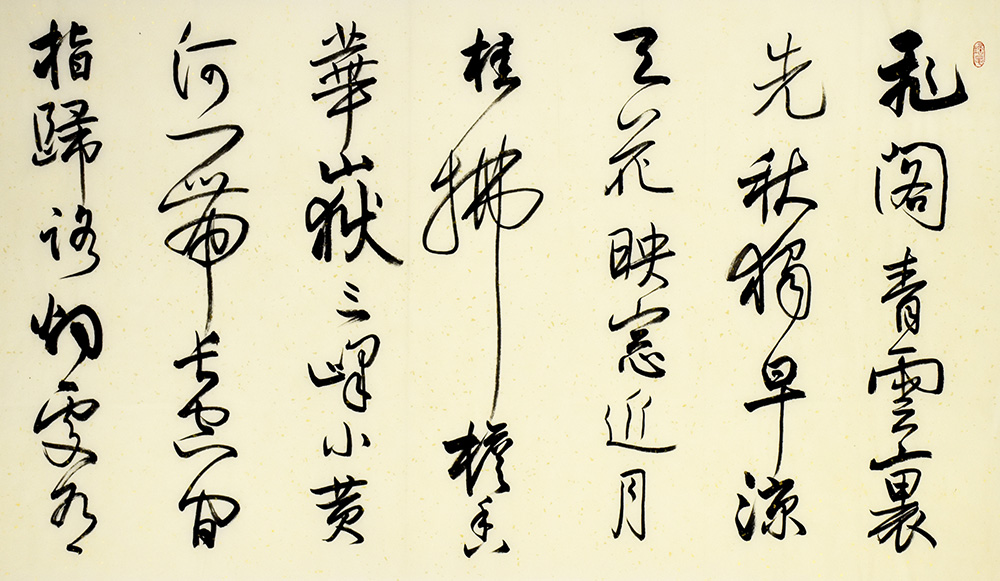 飛閣青雲裏
先秋獨早涼
天花映窓近月
桂拂檐香
華嶽三峰小黄
河一帶長空間
指歸路烟處有